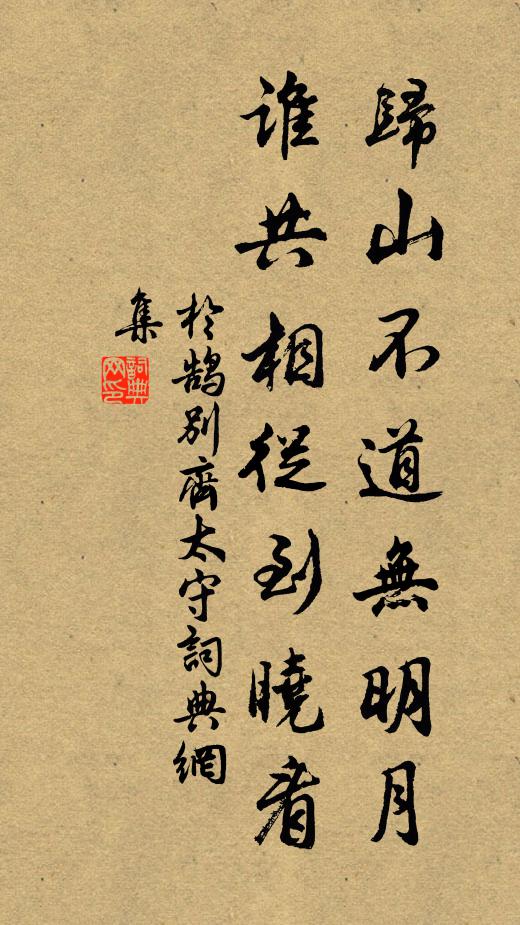 歸山不道無明月
誰共相從到曉看
於鵠別齊太守詞典網
集
詞典
网印